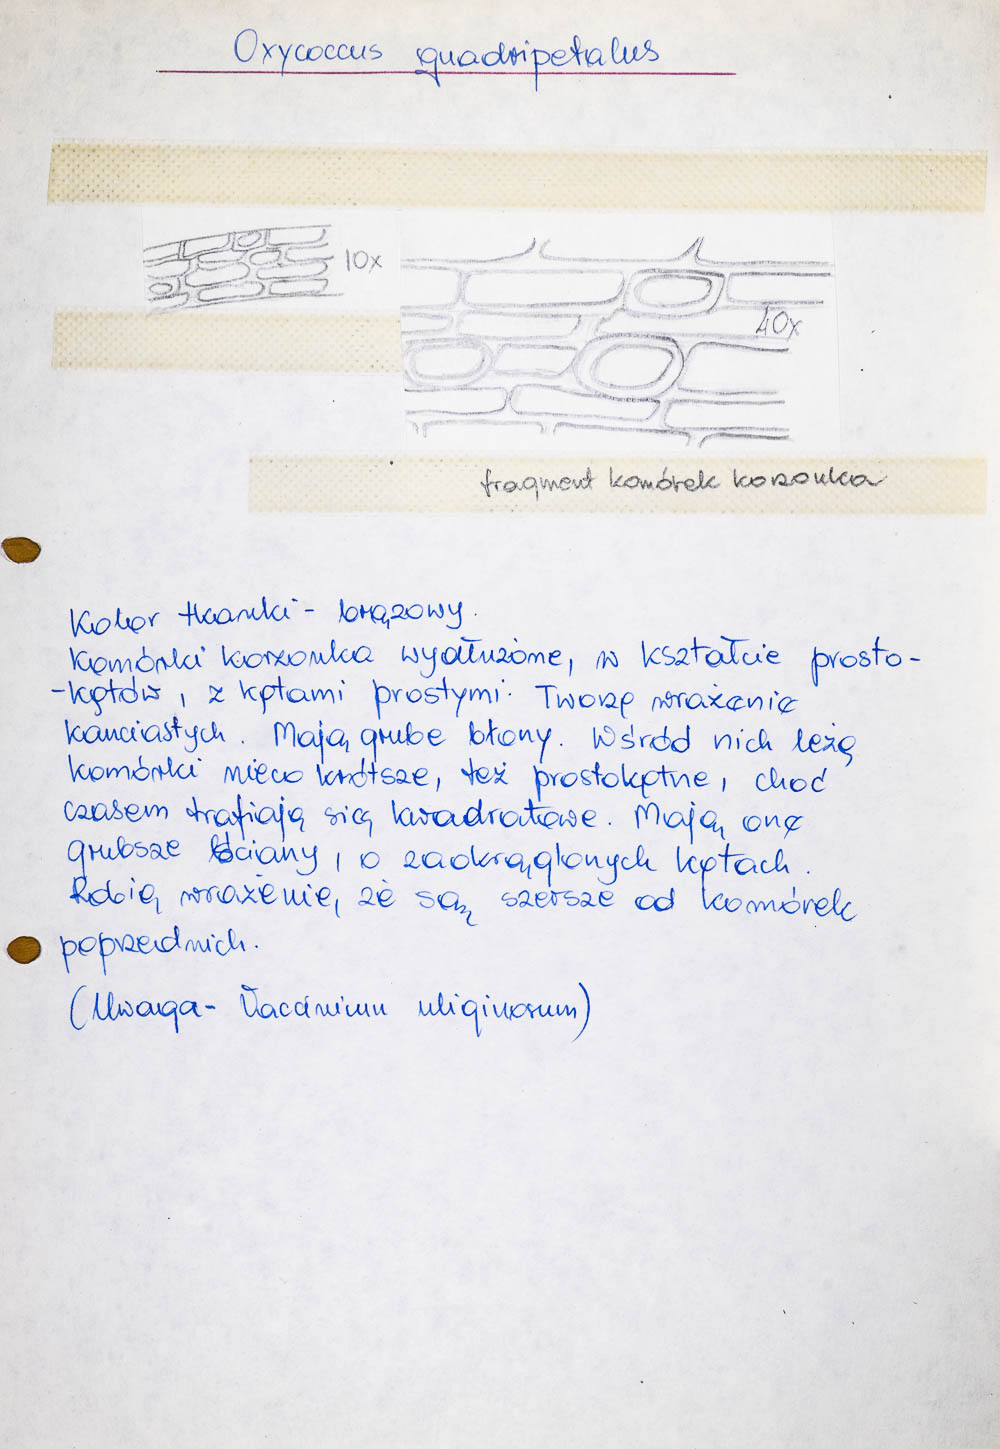 Oxycoccus quadripetalus
10x
40x
fragment komórek korzonka
Kolor tkanki - brązowy.
Komórki korzonka wydłużone, w kształcie prosto-
-kątów, z kątami prostymi. Tworzą wrażenie
kanciastych. Mają grube błony. Wśród nich leżą
komórki nieco krótsze, też prostokątne, choć
czasem trafiają się kwadratowe. Mają one
grubsze ściany, o zaokrąglonych kątach.
Robią wrażenie, że są szersze od komórek
poprzednich.
(Uwaga - Vaccinium uliginosum)